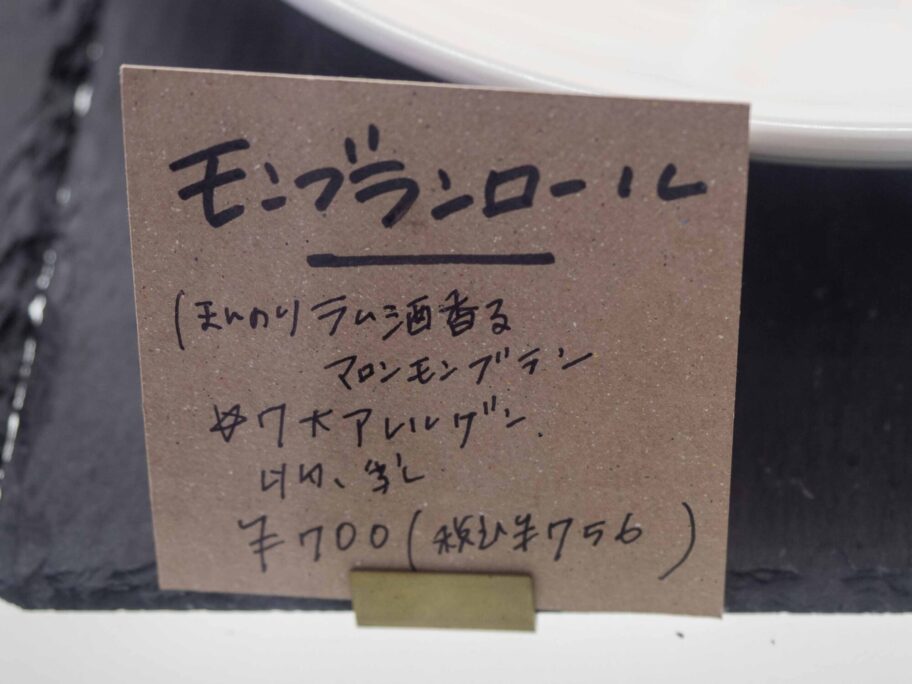 モンブランロール
(ほんのりラム酒香る
マロンモンブラン
☆7大アレルゲン
卵、乳
¥700(税込¥756)